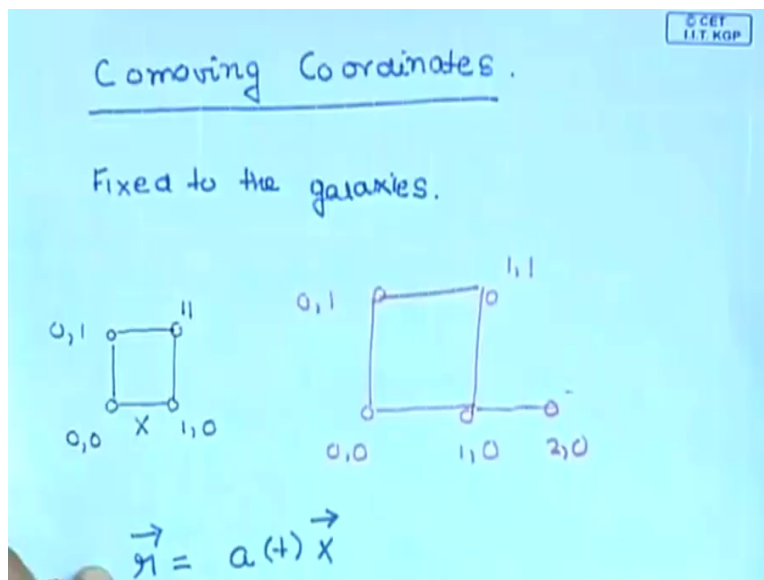 © CET
I.I.T. KGP
Comoving Coordinates.
Fixed to the galaxies.
0,1 11
0,0 X 1,0
0,1 1,1
0,0 1,0 2,0
r⃗ = a(t) x⃗